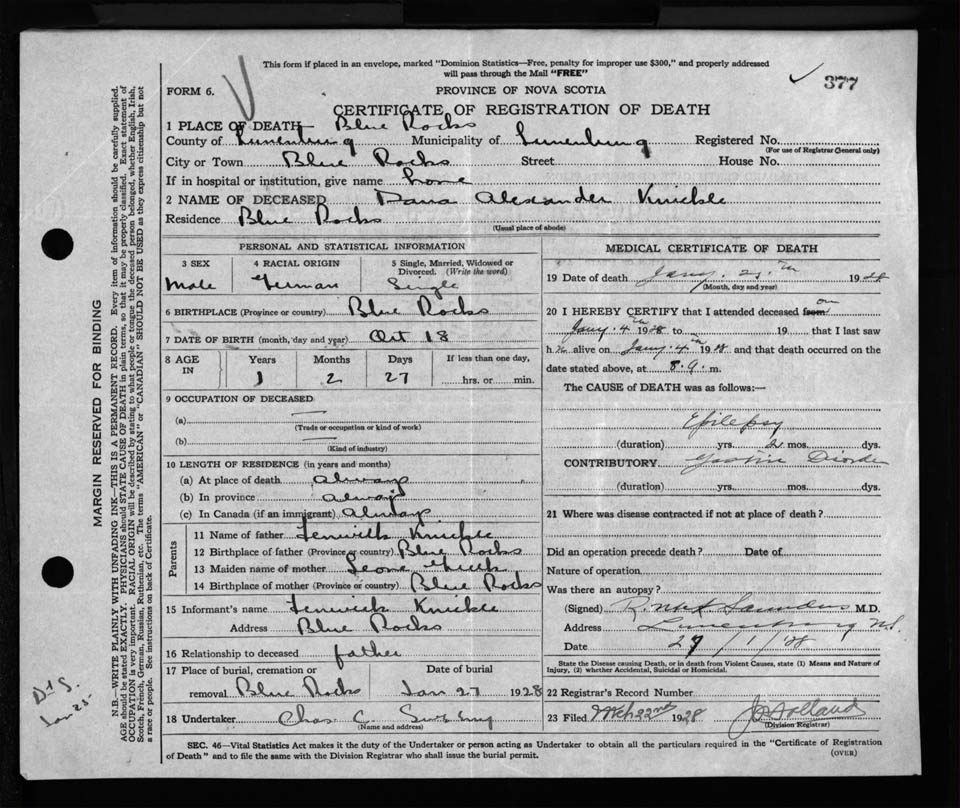 This form if placed in an envelope, marked "Dominion Statistics—Free, penalty for improper use $300," and properly addressed
will pass through the Mail "FREE"
377
FORM 6.
PROVINCE OF NOVA SCOTIA
CERTIFICATE OF REGISTRATION OF DEATH
1 PLACE OF DEATH Blue Rocks
County of Lunenburg Municipality of Lunenburg Registered No.
(For use of Registrar General only)
City or Town Blue Rocks Street House No.
If in hospital or institution, give name home
2 NAME OF DECEASED Dana Alexander Knickle
Residence Blue Rocks
(Usual place of abode)
PERSONAL AND STATISTICAL INFORMATION
3 SEX 4 RACIAL ORIGIN 5 Single, Married, Widowed or
Divorced. (Write the word)
Male German Single
6 BIRTHPLACE (Province or country) Blue Rocks
7 DATE OF BIRTH (month, day and year) Oct 18
8 AGE IN Years Months Days If less than one day,
1 2 27 hrs. or min.
9 OCCUPATION OF DECEASED
(a) —
(Trade or occupation or kind of work)
(b) —
(Kind of industry)
10 LENGTH OF RESIDENCE (in years and months)
(a) At place of death always
(b) In province always
(c) In Canada (if an immigrant) Always
Parents
11 Name of father Fenwick Knickle
12 Birthplace of father (Province or country) Blue Rocks
13 Maiden name of mother
14 Birthplace of mother (Province or country) Blue Rocks
15 Informant's name Fenwick Knickle
Address Blue Rocks
16 Relationship to deceased father
17 Place of burial, cremation or Date of burial
removal Blue Rocks Jan 27 1928
18 Undertaker Chas C.
(Name and address)
MEDICAL CERTIFICATE OF DEATH
19 Date of death Jany. 25th 1928
(Month, day and year)
20 I HEREBY CERTIFY that I attended deceased from on
Jany. 4th 1928 to 19 that I last saw
h alive on Jany. 4th 1928 and that death occurred on the
date stated above, at m.
The CAUSE of DEATH was as follows:—
Epilepsy
(duration) yrs. 2 mos. dys.
CONTRIBUTORY Gastric
(duration) yrs. mos. dys.
21 Where was disease contracted if not at place of death?
Did an operation precede death? Date of
Nature of operation
Was there an autopsy?
(Signed) Saunders M.D.
Address Lunenburg N.S.
Date 27/1/28
State the Disease causing Death, or in death from Violent Causes, state (1) Means and Nature of
Injury, (2) whether Accidental, Suicidal or Homicidal.
22 Registrar's Record Number
23 Filed Mch 22nd 1928
(Division Registrar)
SEC. 46—Vital Statistics Act makes it the duty of the Undertaker or person acting as Undertaker to obtain all the particulars required in the "Certificate of Registration
of Death" and to file the same with the Division Registrar who shall issue the burial permit. (OVER)
MARGIN RESERVED FOR BINDING
N.B.—WRITE PLAINLY WITH UNFADING INK—THIS IS A PERMANENT RECORD. Every item of information should be carefully supplied.
AGE should be stated EXACTLY. PHYSICIANS should STATE CAUSE OF DEATH in plain terms, so that it may be properly classified. Exact statement of
OCCUPATION is very important. RACIAL ORIGIN will be described by stating to what people or tongue the deceased person belonged, whether English, Irish,
Scotch, French, German, Russian, Ruthenian, etc. The terms "AMERICAN" or "CANADIAN" SHOULD NOT BE USED as they express citizenship but not
a race or people. See instructions on back of Certificate.
Jan 25